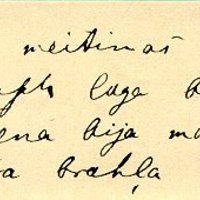 meitinas
laga
ena bija ma
a brahļa